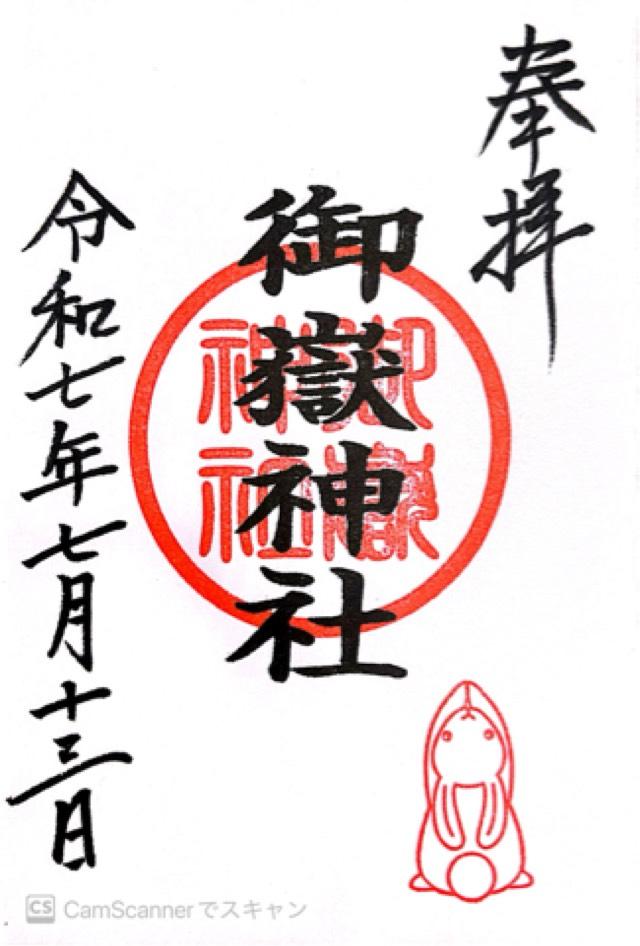 奉拝
御嶽神社
御嶽
神社
令和七年七月十三日
CS CamScannerでスキャン